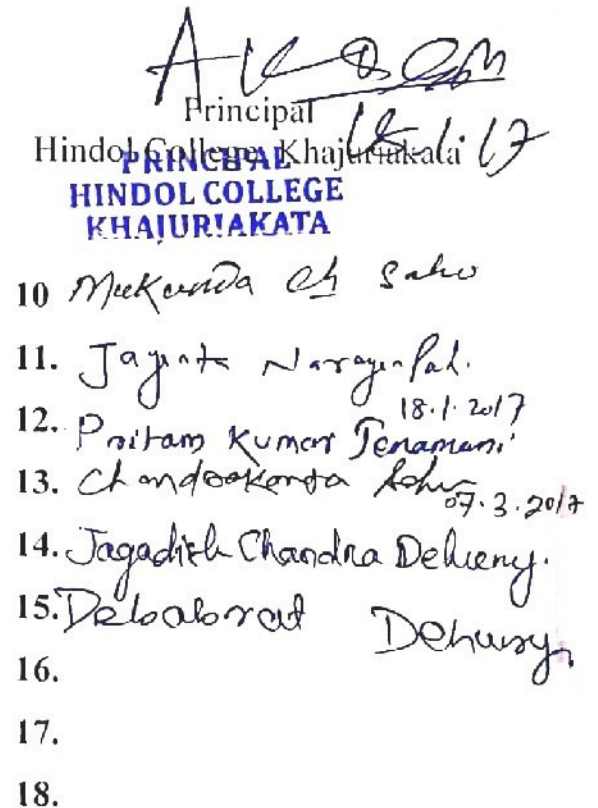 Principal
18.1.17
Hindol College, Khajuriakata
PRINCIPAL
HINDOL COLLEGE
KHAJURIAKATA
10 Mukunda Ch Sahu
11. Jayanta Narayan Pal.
18.1.2017
12. Pritam Kumar Tenamani
13. Chandrakanta Sahu
07.3.2017
14. Jagadish Chandra Dehury.
15. Debabrat Dehury
16.
17.
18.